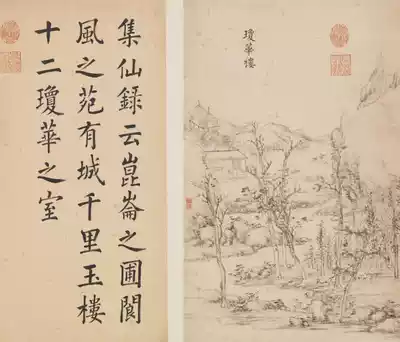 集仙錄云崑崙之圃閬
風之苑有城千里玉樓
十二瓊華之室
瓊華樓